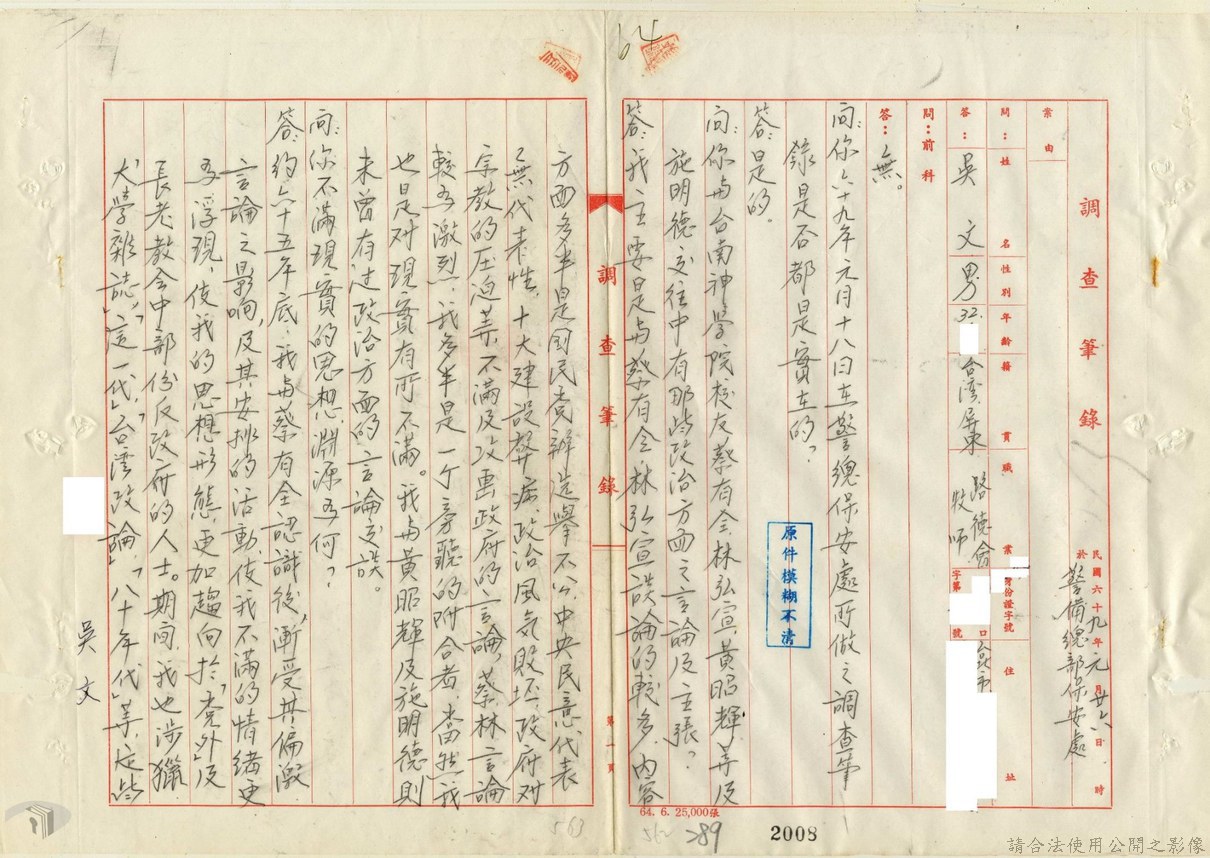 調查筆錄
民國六十九年元月廿六日 時
於警備總部保安處
案由
問：姓名 性別 年齡 籍貫 職業 身份證字號 住址
答：吳文 男 32. 台湾屏東 路德會牧師 字第 號 台南市
問：前科
答：無。
問：你六十九年元月十八日在警總保安處所做之調查筆
錄是否都是實在的？
答：是的。
問：你与台南神學院校友蔡有全、林弘宣、黃昭輝等及
施明德交往中有那些政治方面之言論及主張？
答：我主要是与蔡有全林弘宣談論的較多，內容
調查筆錄
第一頁
方面多半是國民党辦選舉不公，中央民意代表
無代表性，十大建設弊病，政治風気敗坏，政府对
宗教的压迫等不滿及攻击政府的言論，蔡林言論
較為激烈，我多半是一个旁聽的附合者，當然我
也是对現實有所不滿。我与黃昭輝及施明德則
未曾有过政治方面的言論交談。
問：你不滿現實的思想淵源為何？
答：約六十五年底，我与蔡有全認識後，漸受其偏激
言論之影响，及其安排的活動，使我不滿的情緒更
為浮現，使我的思想形態，更加趨向於「党外」及
長老教会中部份反政府的人士。期間，我也涉獵
「大學雜誌」、「這一代」、「台湾政論」、「八十年代」等，這些
吳文
原件模糊不清
64. 6. 25,000張
64
563
562
289
2008
請合法使用公開之影像